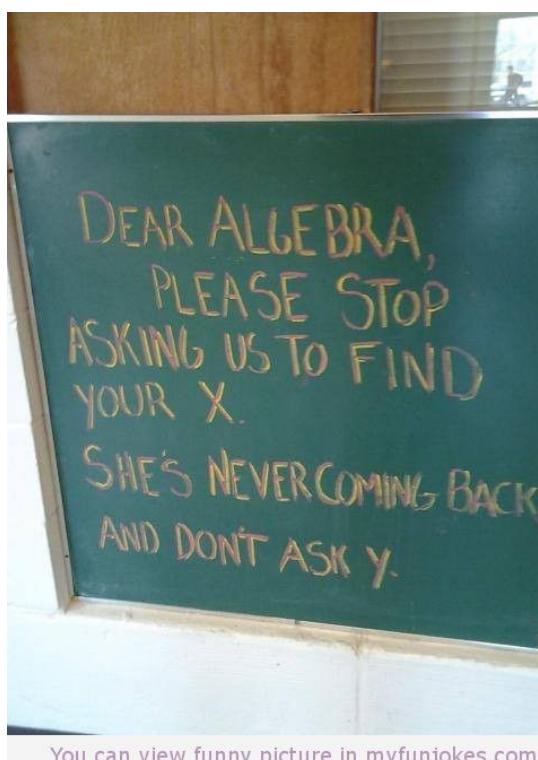 DEAR ALGEBRA,
PLEASE STOP
ASKING US TO FIND
YOUR X.
SHE'S NEVER COMING BACK
AND DON'T ASK Y.
You can view funny picture in myfunjokes.com